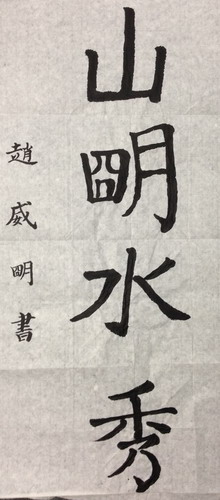 山明水秀
趙威明書